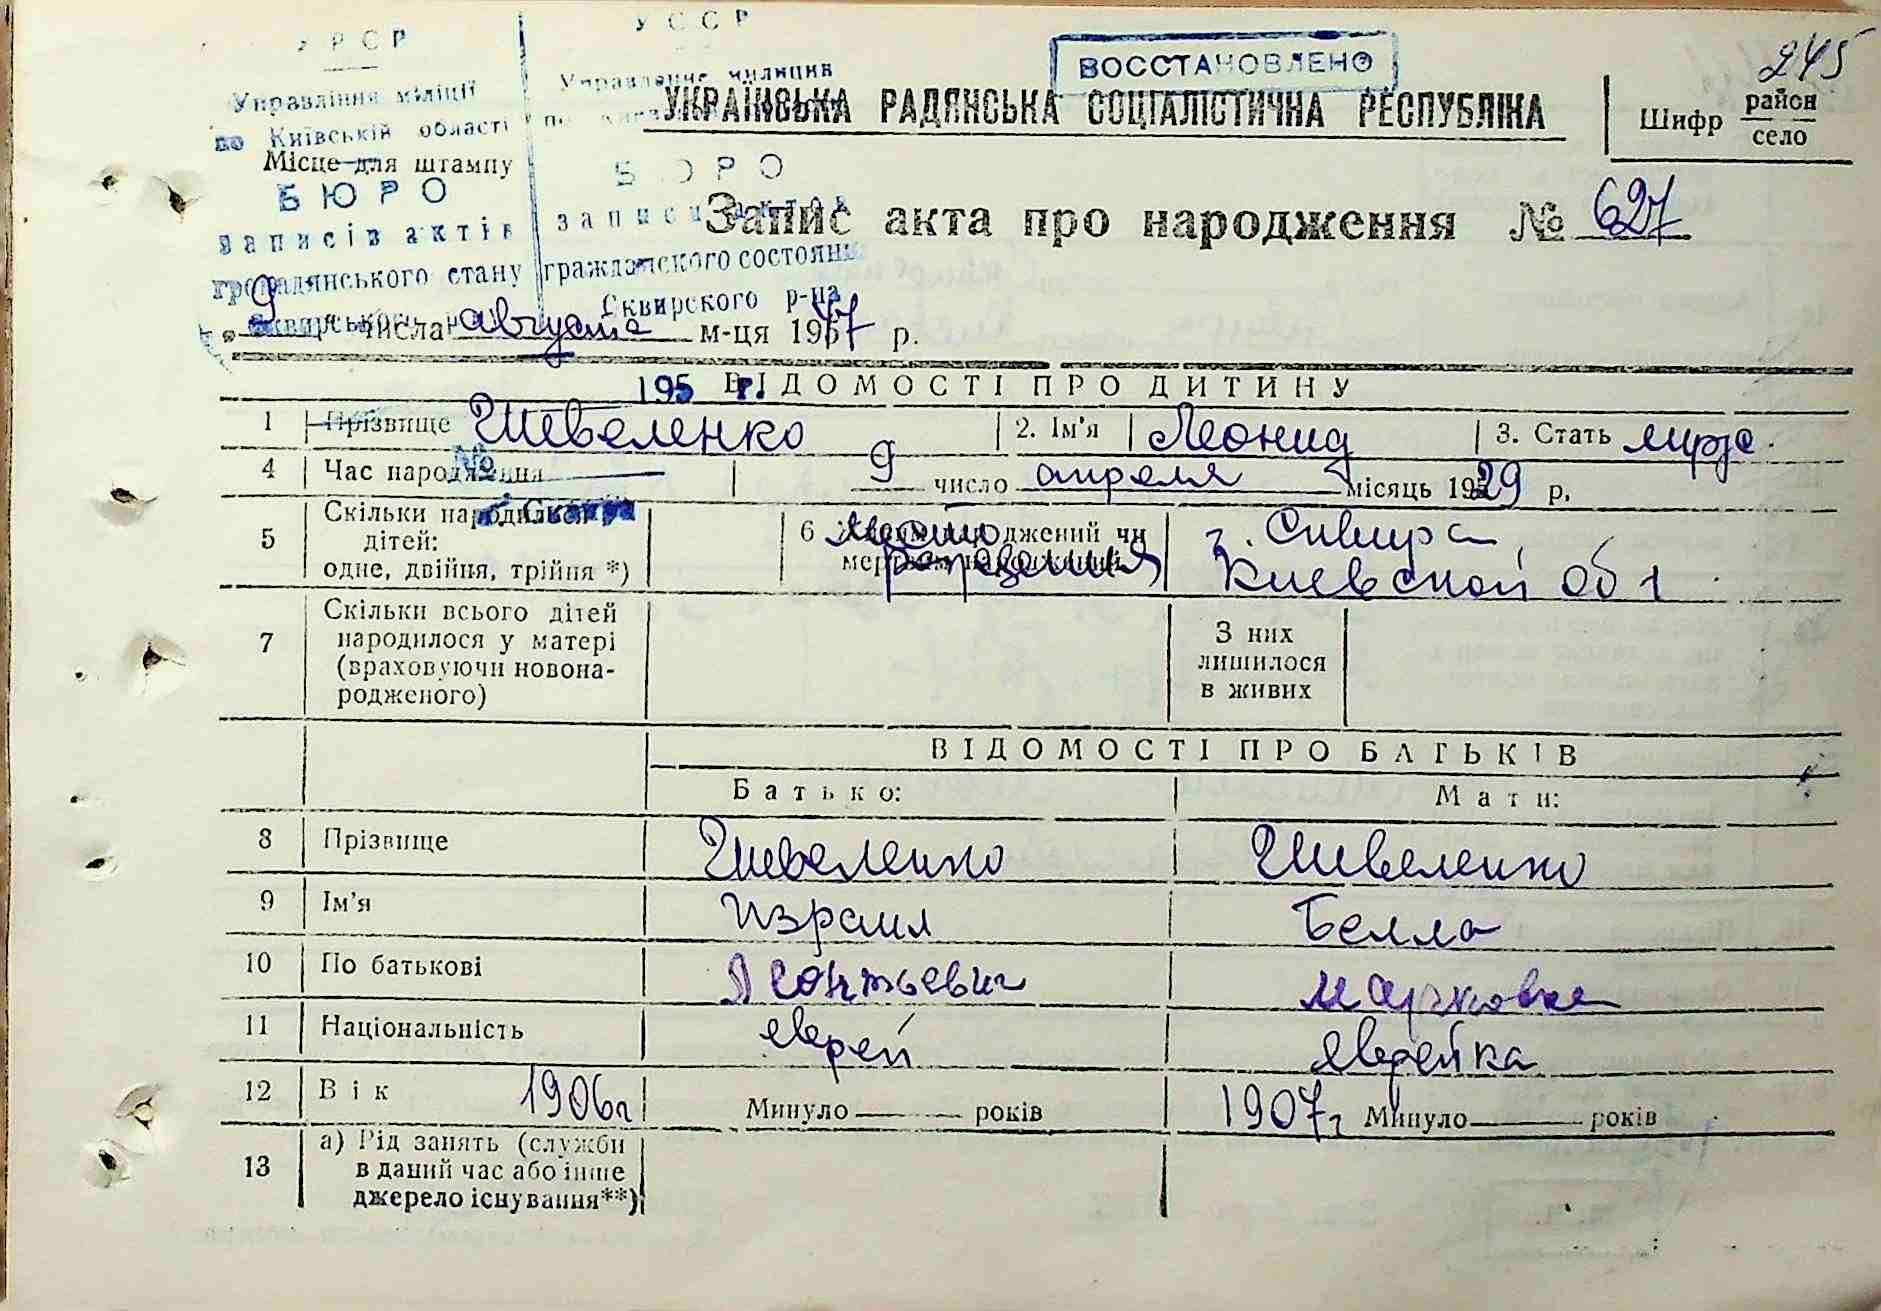 245
УРСР
УССР
ВОССТАНОВЛЕНО
Управління міліції
Управление милиции
УКРАЇНСЬКА РАДЯНСЬКА СОЦІАЛІСТИЧНА РЕСПУБЛІКА
Шифр район
село
по Київській області
Місце для штампу
БЮРО
БЮРО
Запис акта про народження № 627
записів актів
записи актов
громадянського стану
гражданского состояния
Сквирського
Сквирского р-на
„ 9 " числа августа м-ця 1957 р.
195 г.
ВІДОМОСТІ ПРО ДИТИНУ
1 Прізвище Шевеленко 2. Ім'я Леонид 3. Стать мужс.
4 Час народження 9 число апреля місяць 1929 р.
№
г. Сквира
5 Скільки народилося дітей:
одне, двійня, трійня *)
6 Живим народжений чи
мертвим народжений
Место рождения
г. Сквира,
Киевской обл
7 Скільки всього дітей
народилося у матері
(враховуючи новона-
родженого)
З них
лишилося
в живих
ВІДОМОСТІ ПРО БАТЬКІВ
Батько:
Мати:
8 Прізвище Шевеленко Шевеленко
9 Ім'я Израил Белла
10 По батькові Леонтьевич Марковна
11 Національність еврей еврейка
12 Вік 1906г Минуло років 1907г Минуло років
13 а) Рід занять (служби
в даний час або інше
джерело існування**)